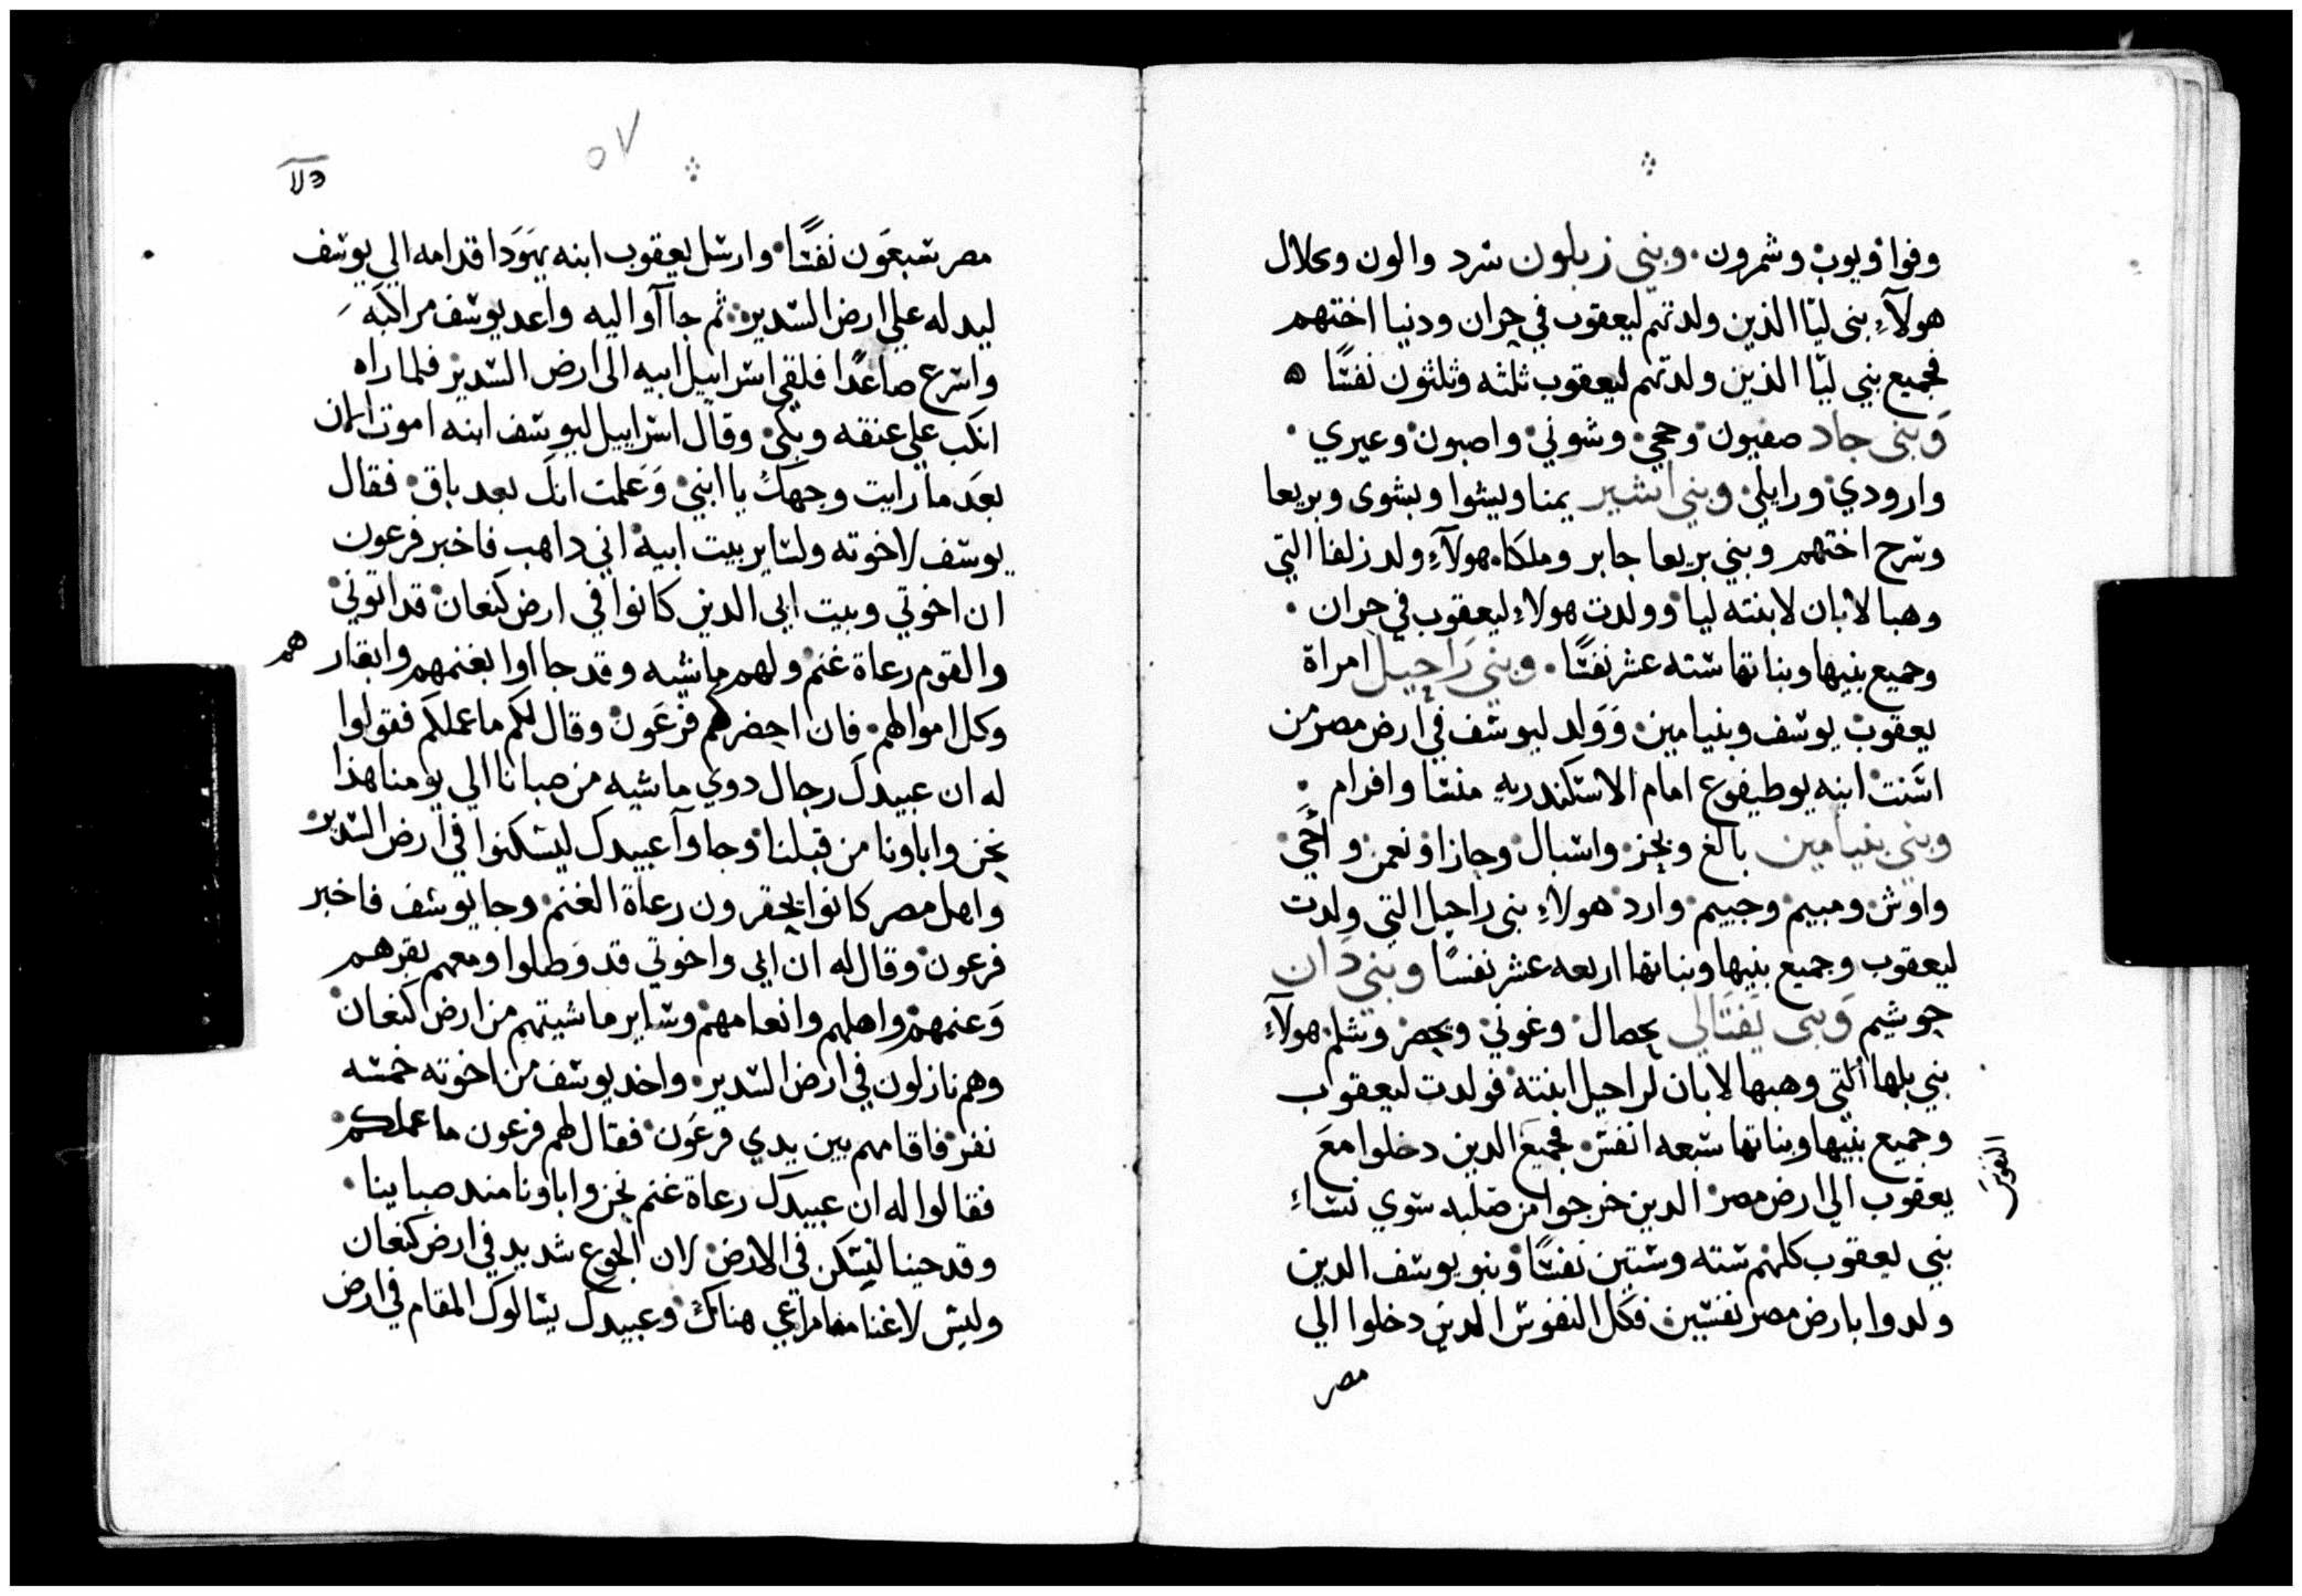 وفوا ويوب وشمرون. وبني زبلون سرد والون ونحلال
هولآءِ بنى ليّا الذين ولدتهم ليعقوب في حران ودنيا اختهم
فجميع بني ليّا الذين ولدتهم ليعقوب ثلثه وثلثون نفسًا ه
وَبنى جاد صفيون وحجي وشوني واصبون وعيري .
وارودي ورايلي وبني اشير يمنا ويشوا وبشوى وبريعا
وسرح اختهم وبني بريعا جابر وملكا. هولآءِ ولد زلفا التي
وهبا لابان لابنته ليا وولدت هولاءِ ليعقوب في حران .
وجميع بنيها وبناتها سته عشر نفسًا. وبني رَاحيل امراة
يعقوب يوسف وبنيامين وَوَلد ليوسف في ارض مصر من
اسَنت ابنه يوطيفوع امام الاسكندريه منسا وافرام .
وبني بنيامين بالغ وبخر واشبال وجازا ونعمن واحَي
واوش ومبيم وجييم وارد هولاءِ بنى راحيل التي ولدت
ليعقوب وجميع بنيها وبناتها اربعه عشر نفسًا وبني دَان
جوشيم وَبنى نفتالي يحصال وغوني ويحصر وشلم هولآءِ
بني بلها التي وهبها لابان لراحيل ابنته فولدت ليعقوب
وجميع بنيها وبناتها سبعه انفس فجميع الدين دخلوا معَ
يعقوب الي ارض مصر الدين خرجوا من صلبه سوي نساءِ
النفوس
بني يعقوب كلهم سته وستين نفسًا وبنو يوسف الدين
ولدوا بارض مصر نفسين فكل النفوس الدين دخلوا الي
مصر
٥٧
مصر سَبعَون نفسًا وارسل يعقوب ابنه يهَوَدا قدامه الي يوسف
ليدله علي ارض السدير ثم جاآوا اليه واعد يوسف مراكبه
واسرع صاعدًا فلقي اسراييل ابيه الى ارض السدير فلما راه
انكب علي عنقه وبكي وقال اسراييل ليوسف ابنه اموت الان
بعَد ما رايت وجهكَ يا ابني وَعَلمت انك بعد باق فقال
يوسف لاخوته ولساير بيت ابيه اني داهب فاخبر فرعون
ان اخوتي وبيت ابي الدين كانوا في ارض كنعان قد اتوني
والقوم رعاة غنم ولهم ماشيه وقد جااوا بغنمهم وابقارهم
وكل اموالهم فان احضركم فرعَون وقال لكم ما عملكم فقولوا
له ان عبيدكَ رجال دوي ماشيه من صبانا الي يومنا هذا
نحن واباونا من قبلنا وجاوآ عبيدك ليسكنوا في ارض السدير
واهل مصر كانوا يحقرون رعاة الغنم وجا يوسف فاخبر
فرعون وقال له ان ابي واخوتي قد وَصلوا ومعهم بقرهم
وَغنمهم واهلهم وانعامهم وساير ماشيتهم من ارض كنعان
وهم نازلون في ارض السدير واخد يوسف من اخوته خمسه
نفر فاقامهم بين يدي فرعَون فقال لهم فرعون ما عملكم
فقالوا له ان عبيدك رعاة غنم نحن واباونا مند صباينا .
وقد جينا لنسكن في الارض لان الجوع شديد في ارض كنعان
وليس لاغنامنا مراعي هناك وعبيدك يسالوك المقام في ارض